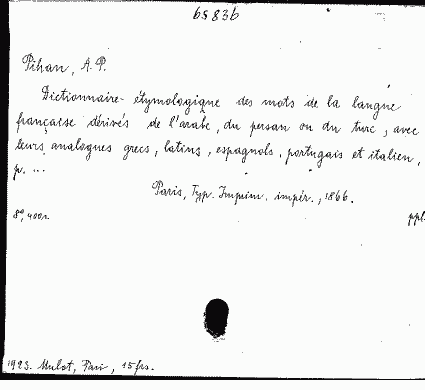 65836
Pihan, A. P.
Dictionnaire étymologique des mots de la langue
française dérivés de l'arabe, du persan ou du turc, avec
leurs analogues grecs, latins, espagnols, portugais et italien,
p. ...
Paris, Typ. Imprim. impér., 1866.
8°, 400 p.
ppl.
1923. Mulot, Paris, 15 frs.